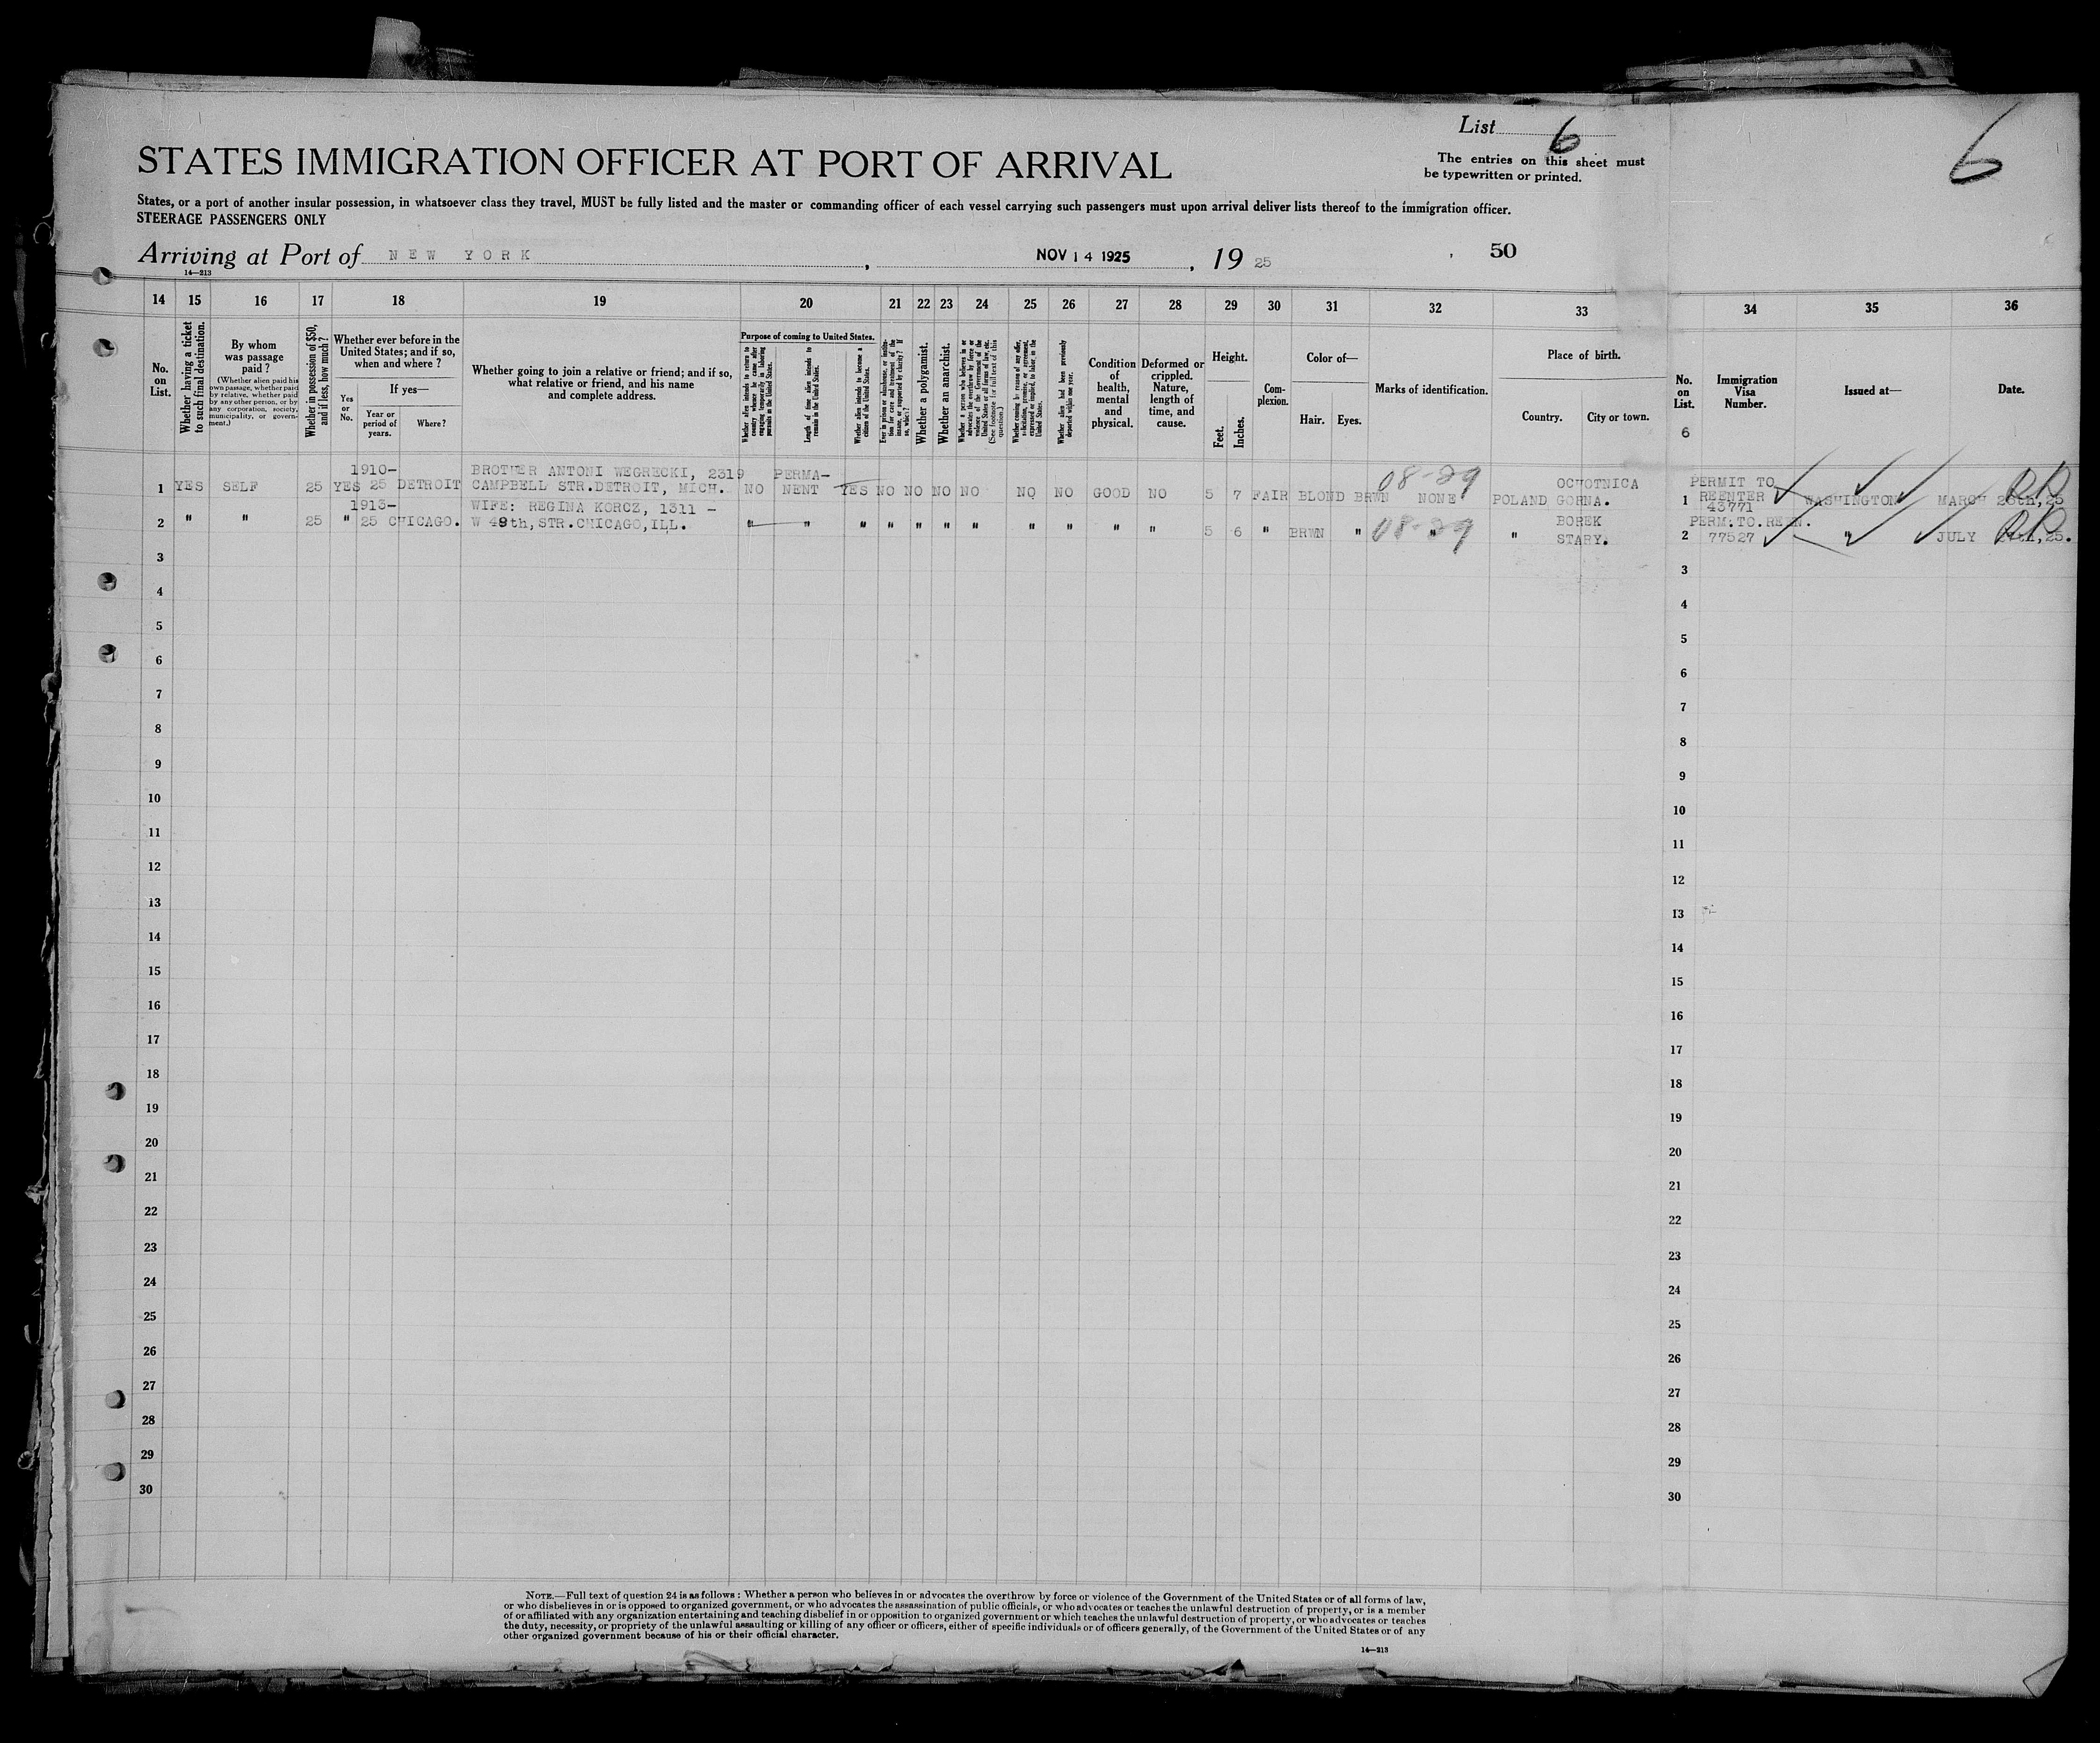 List 6
6
The entries on this sheet must
be typewritten or printed.
STATES IMMIGRATION OFFICER AT PORT OF ARRIVAL
States, or a port of another insular possession, in whatsoever class they travel, MUST be fully listed and the master or commanding officer of each vessel carrying such passengers must upon arrival deliver lists thereof to the immigration officer.
STEERAGE PASSENGERS ONLY
Arriving at Port of NEW YORK, NOV 14 1925, 19 25 50
14—213
14 15 16 17 18 19 20 21 22 23 24 25 26 27 28 29 30 31 32 33 34 35 36
No. on List.
Whether having a ticket to such final destination.
By whom was passage paid?
(Whether alien paid his own passage, whether paid by relative, whether paid by any other person, or by any corporation, society, municipality, or government.)
Whether in possession of $50, and if less, how much?
Whether ever before in the United States; and if so, when and where?
Yes or No.
If yes—
Year or period of years.
Where?
Whether going to join a relative or friend; and if so, what relative or friend, and his name and complete address.
Purpose of coming to United States.
Whether alien intends to return to country whence he came after engaging temporarily in laboring pursuits in the United States.
Length of time alien intends to remain in the United States.
Whether alien intends to become a citizen of the United States.
Ever in prison or almshouse, or institution for care and treatment of the insane, or supported by charity? If so, which?
Whether a polygamist.
Whether an anarchist.
Whether a person who believes in or advocates the overthrow by force or violence of the Government of the United States or all forms of law, etc. (See footnote for full text of this question.)
Whether coming by reason of any offer, solicitation, promise, or agreement, expressed or implied, to labor in the United States.
Whether alien had been previously deported within one year.
Condition of health, mental and physical.
Deformed or crippled. Nature, length of time, and cause.
Height.
Feet. Inches.
Complexion.
Color of—
Hair. Eyes.
Marks of identification.
Place of birth.
Country. City or town.
No. on List.
6
Immigration Visa Number.
Issued at—
Date.
1910- BROTHER ANTONI WEGRECKI, 2319 PERMA- 08-29 OCHOTNICA PERMIT TO
1 YES SELF 25 YES 25 DETROIT CAMPBELL STR.DETROIT, MICH. NO NENT YES NO NO NO NO NO NO GOOD NO 5 7 FAIR BLOND BRWN NONE POLAND GORNA. 1 REENTER 43771 WASHINGTON MARCH 25
1913- WIFE: REGINA KORCZ, 1311 - BOREK PERM.TO.REEN.
2 " " 25 " 25 CHICAGO. W 49th,STR.CHICAGO,ILL. " " " " " " " " " " " 5 6 " BRWN " 08-29 " " STARY. 2 77527 " JULY 25.
3 3
4 4
5 5
6 6
7 7
8 8
9 9
10 10
11 11
12 12
13 13
14 14
15 15
16 16
17 17
18 18
19 19
20 20
21 21
22 22
23 23
24 24
25 25
26 26
27 27
28 28
29 29
30 30
NOTE.—Full text of question 24 is as follows: Whether a person who believes in or advocates the overthrow by force or violence of the Government of the United States or of all forms of law,
or who disbelieves in or is opposed to organized government, or who advocates the assassination of public officials, or who advocates or teaches the unlawful destruction of property, or is a member
of or affiliated with any organization entertaining and teaching disbelief in or opposition to organized government or which teaches the unlawful destruction of property, or who advocates or teaches
the duty, necessity, or propriety of the unlawful assaulting or killing of any officer or officers, either of specific individuals or of officers generally, of the Government of the United States or of any
other organized government because of his or their official character.
14—213